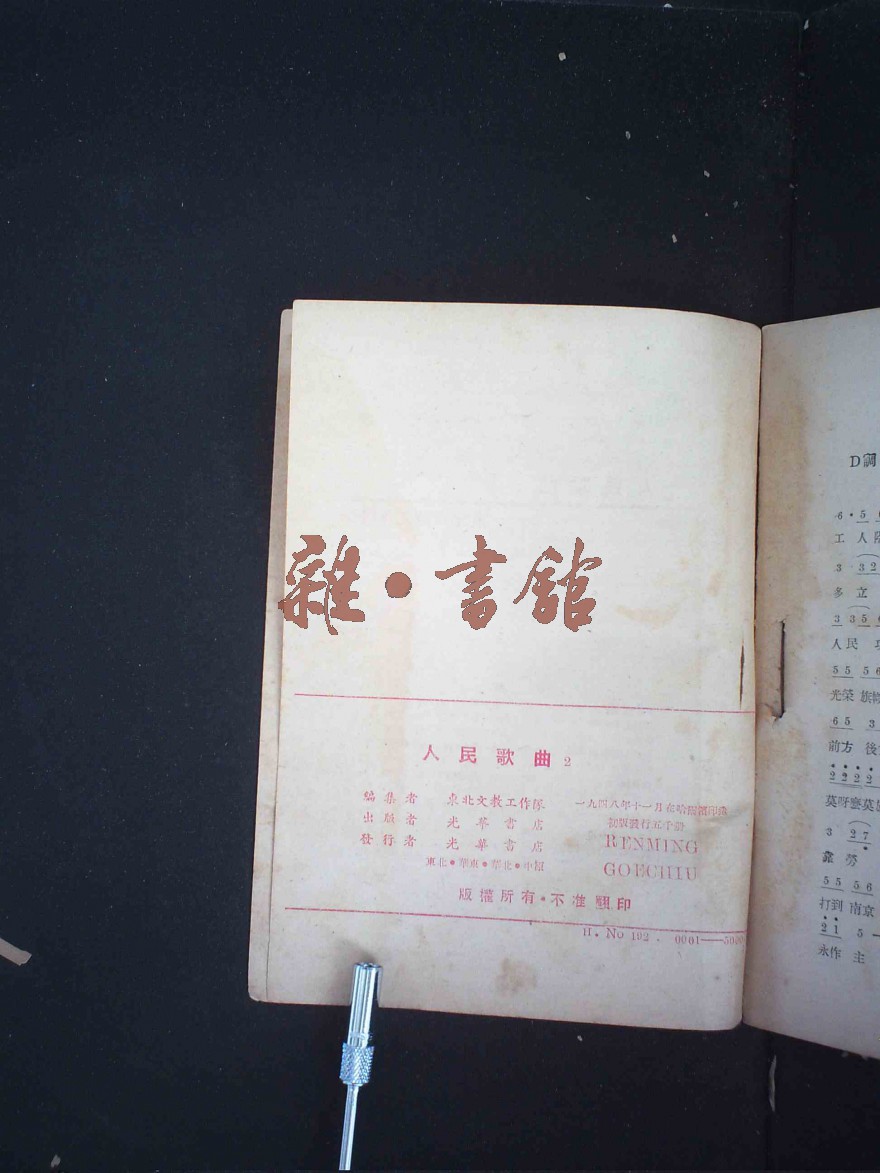 雜·書館
人民歌曲2
編集者 東北文教工作隊 一九四八年十一月在哈爾濱印造
出版者 光華書店 初版發行五千冊
發行者 光華書店 RENMING
東北·華東·華北·中原 GOECHIU
版權所有·不准翻印
H. No 192. 0001—5000
D調
6·5
工人
3 32
多立
3 35
人民
55 56
光榮旗幟
65 3
前方 後
2222
莫呀麼莫
3 27
靠勞
55 56
打到南京
21 5 —
永作主